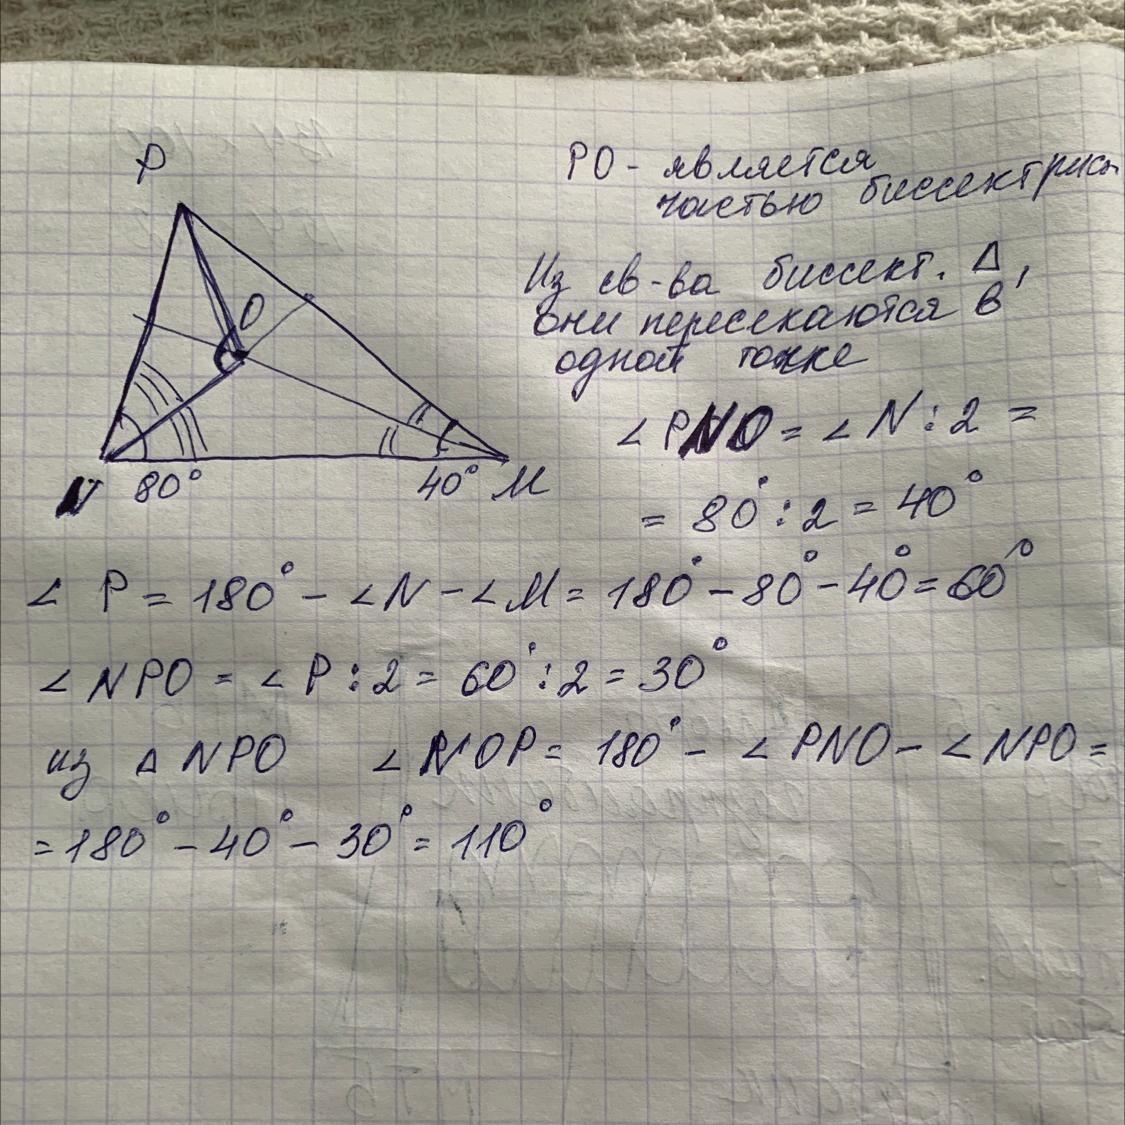 P
O
N 80° 40° M
PO - является
частью биссектрисы
Из св-ва биссект. Δ,
они пересекаются в
одной точке
∠PNO = ∠N : 2 =
= 80° : 2 = 40°
∠ P = 180° - ∠N - ∠M = 180° - 80° - 40° = 60°
∠ NPO = ∠ P : 2 = 60° : 2 = 30°
из Δ NPO ∠ NOP = 180° - ∠ PNO - ∠ NPO =
= 180° - 40° - 30° = 110°